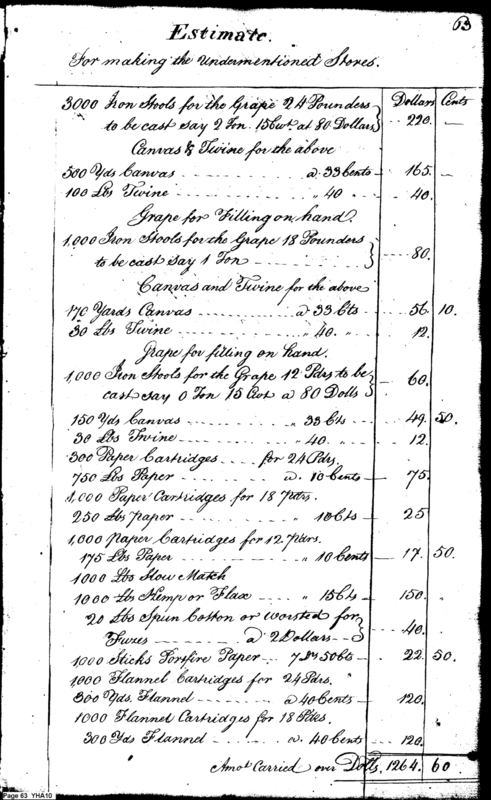 63
Estimate.
For making the Undermentioned Stores.
Dollars Cents
3000 Iron Stools for the Grape 24 Pounders
to be cast say 2 Ton 15Cwt. at 80 Dollars } 220. —
Canvas & Twine for the above
500 Yds Canvas a 33 Cents 165. —
100 Lbs Twine " 40 40.
Grape for Filling on hand
1,000 Iron Stools for the Grape 18 Pounders
to be cast say 1 Ton } 80.
Canvas and Twine for the above
170 Yards Canvas a 33 Cts 56. 10.
30 Lbs Twine " 40. " 12.
Grape for filling on hand.
1,000 Iron Stools for the Grape 12 Pdrs to be
cast say 0 Ton 15 Cwt a 80 Dolls } 60.
150 Yds Canvas " 33 Cts 49. 50.
30 Lbs Twine " 40. " 12.
300 Paper Cartridges for 24 Pdrs.
750 Lbs Paper a. 10 Cents 75.
1,000 Paper Cartridges for 18 pdrs.
250 Lbs paper " 10 Cts 25
1,000 paper Cartridges for 12 pdrs.
175 Lbs Paper " 10 Cents 17. 50.
1000 Lbs Slow Match
1000 Lb Hemp or Flax " 15 Cts 150. "
20 Lbs Spun Cotton or Worsted for
Fuzes a 2 Dollars } 40.
1000 Sticks Portfire Paper 50 Cts 22. 50.
1000 Flannel Cartridges for 24 Pdrs. "
300 Yds. Flannel a 40 Cents 120.
1000 Flannel Cartridges for 18 Pdrs.
300 Yds Flannel a. 40 Cents 120.
Amot. Carried over Dolls, 1264. 60
Page 63 YHA10